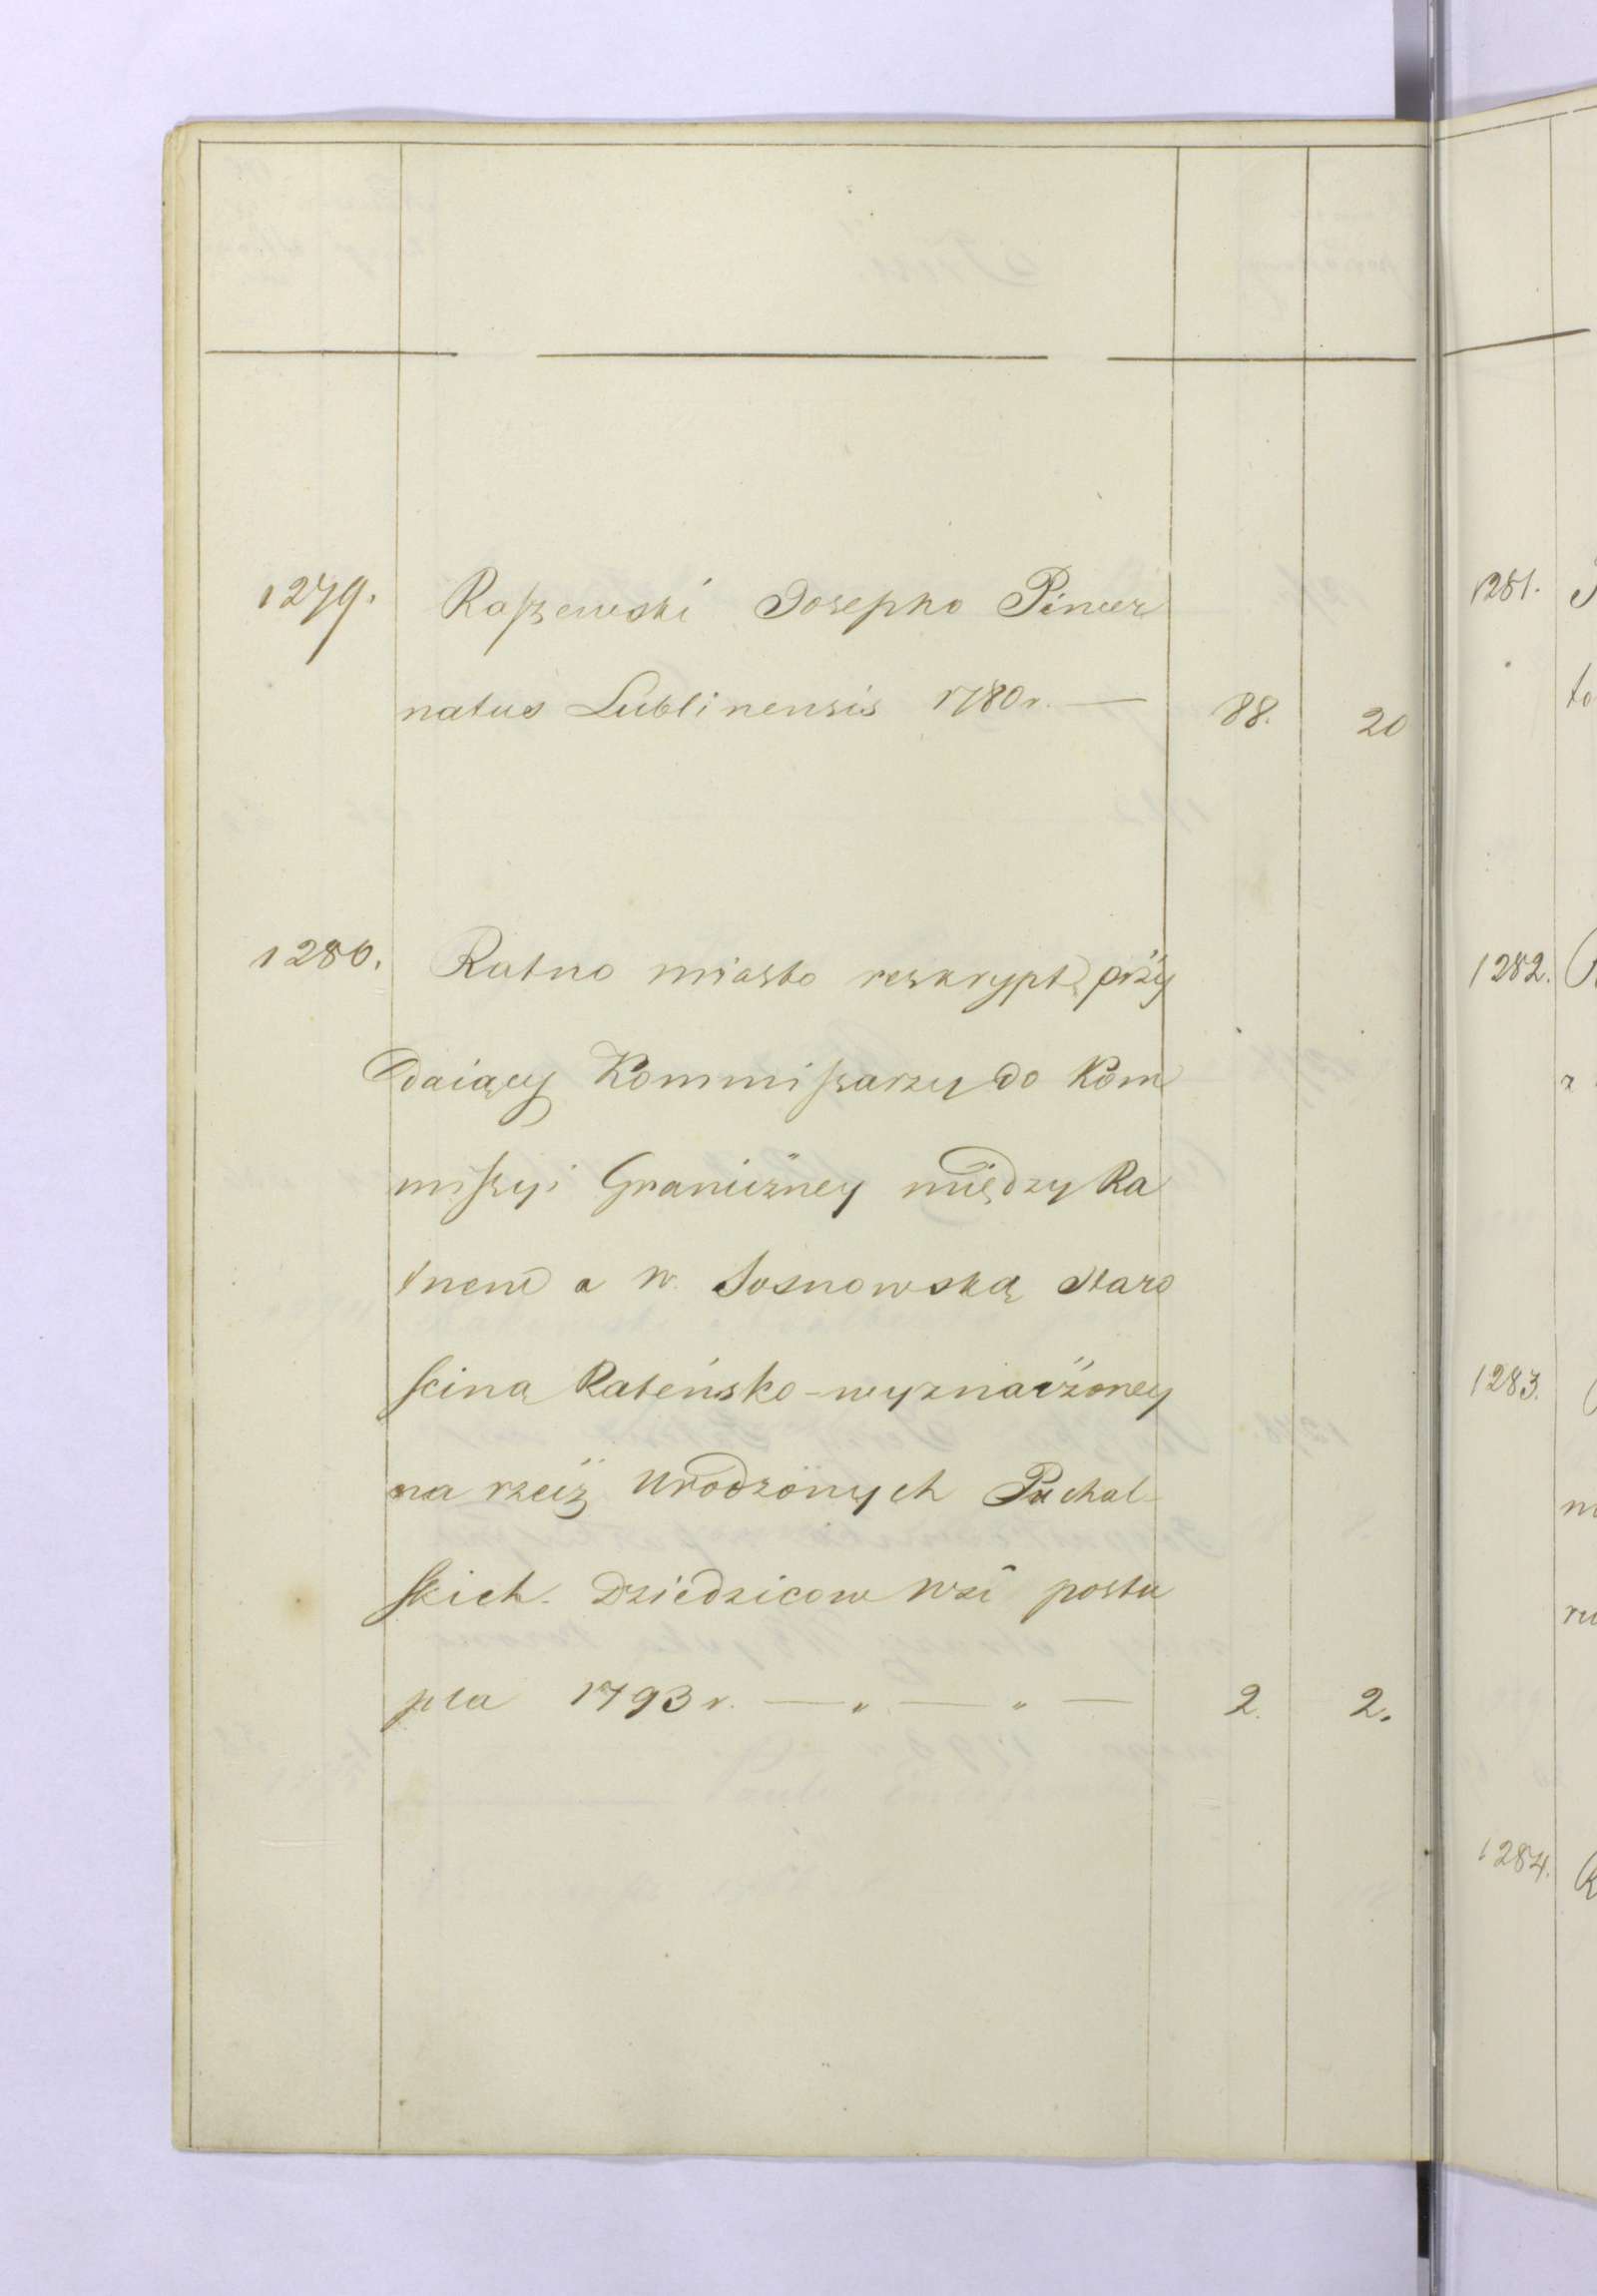 1279. Raszewski Josepho Pincer
natus Lublinensis 1780 r. — 88. 20
1280. Ratno miasto reskrypt przy
daiący Kommissarzy do Kom
missyi Graniczney między Ra
tnem a W. Sosnowską Staro
scina Rateńsko - wyznaczoney
na rzecz Urodzonych Puchal
skich Dziedzicow wsi postu
pla 1793 r. — " — " — 2. 2.
1281.
to
1282.
1283.
1284.